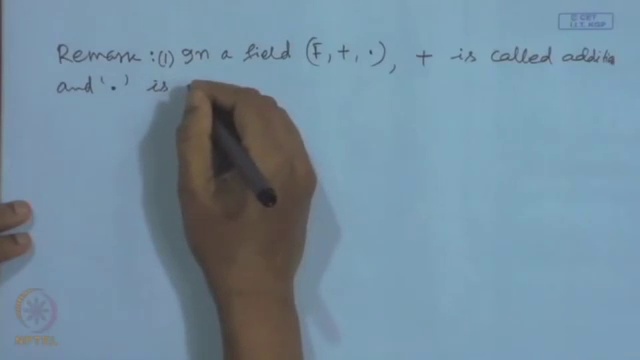 © CET
I.I.T. KGP
Remark : (1) In a field (F, +, ·), + is called additio
and '·' is
NPTEL